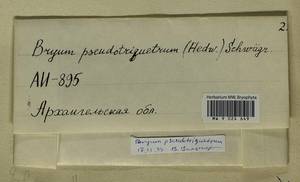 2.
Bryum pseudotriquetrum (Hedw.) Schwägr.
АИ-895
Архангельская обл.
Herbarium MW, Bryophyta
MW 9 026 649
Bryum pseudotriquetrum